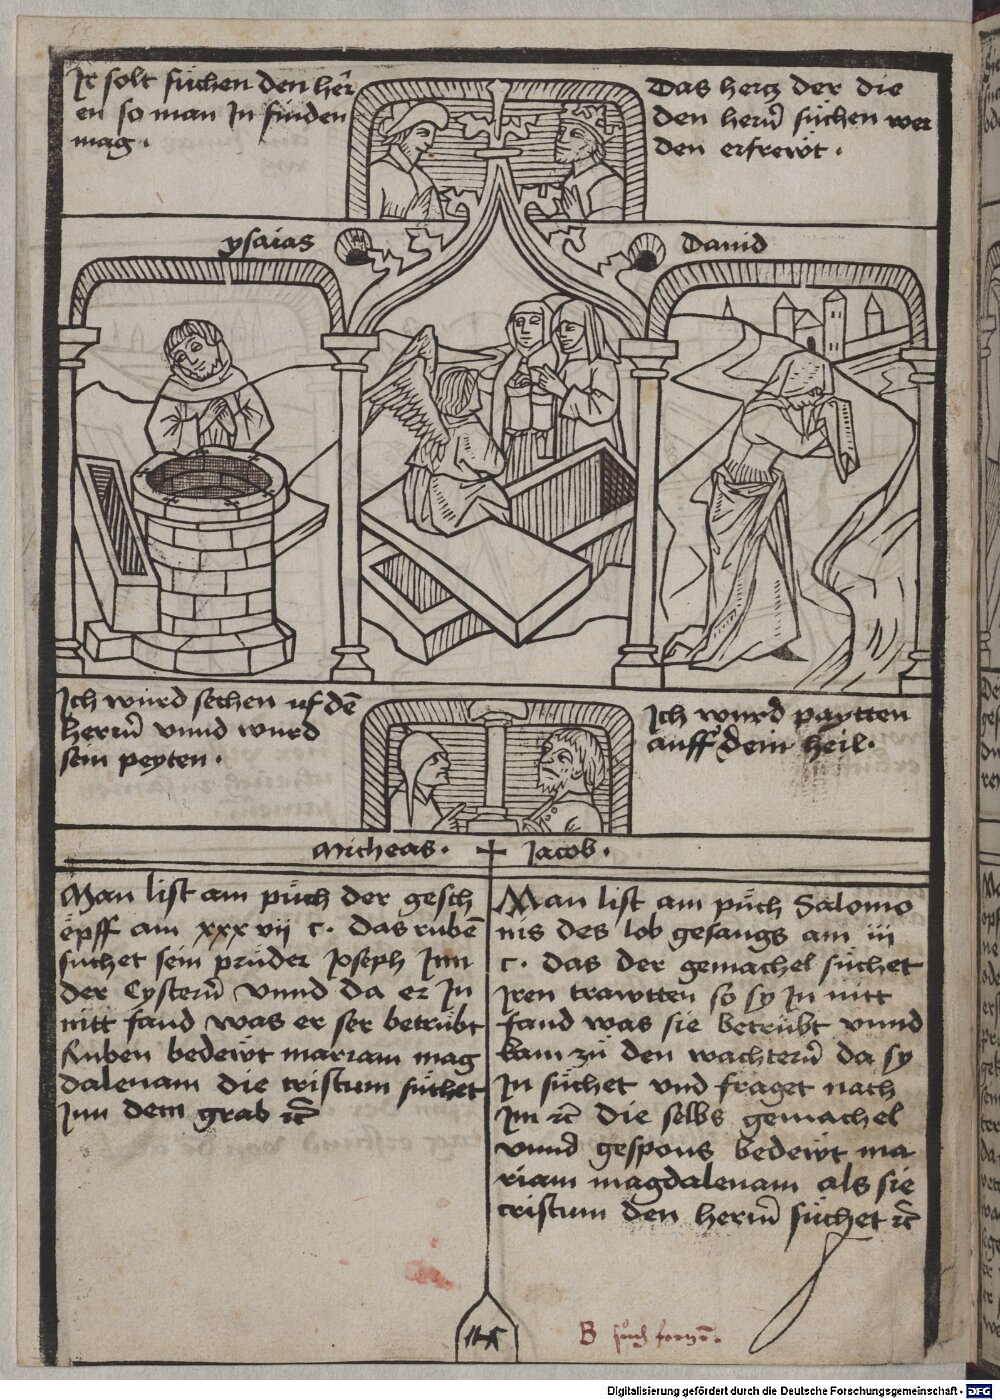 Ir solt süchen den her̄
en so man In finden
mag.
Das hertz der die
den herñ süchen wer
den erfrewt.
ysaias
Dauid
Ich würd sechen uf dē
herrñ vnnd wurd
sein peyten.
Ich wurd paytten
auff dein heil.
Micheas. + Jacob.
Man list am püch der gesch
epff am xxxvii c. das rubē
süchet sein prüder Joseph Inn
der Cysterñ vnnd da er In
nitt fand was er ser betrübt
Ruben bedewt mariam mag
dalenam die cristum süchet
Inn dem grab ꝛc̄
Man list am püch Salomo
nis des lob gesangs am iii
c. das der gemachel süchet
Iren trawtten so sy In nitt
fand was sie betrübt vnnd
kam zü den wachterñ da sy
In süchet vnd fraget nach
Im ꝛc̄ die selbs gemachel
vnnd gespons bedewt ma
riam magdalenam als sie
cristum den herrñ süchet ꝛc̄
B such
Digitalisierung gefördert durch die Deutsche Forschungsgemeinschaft - DFG